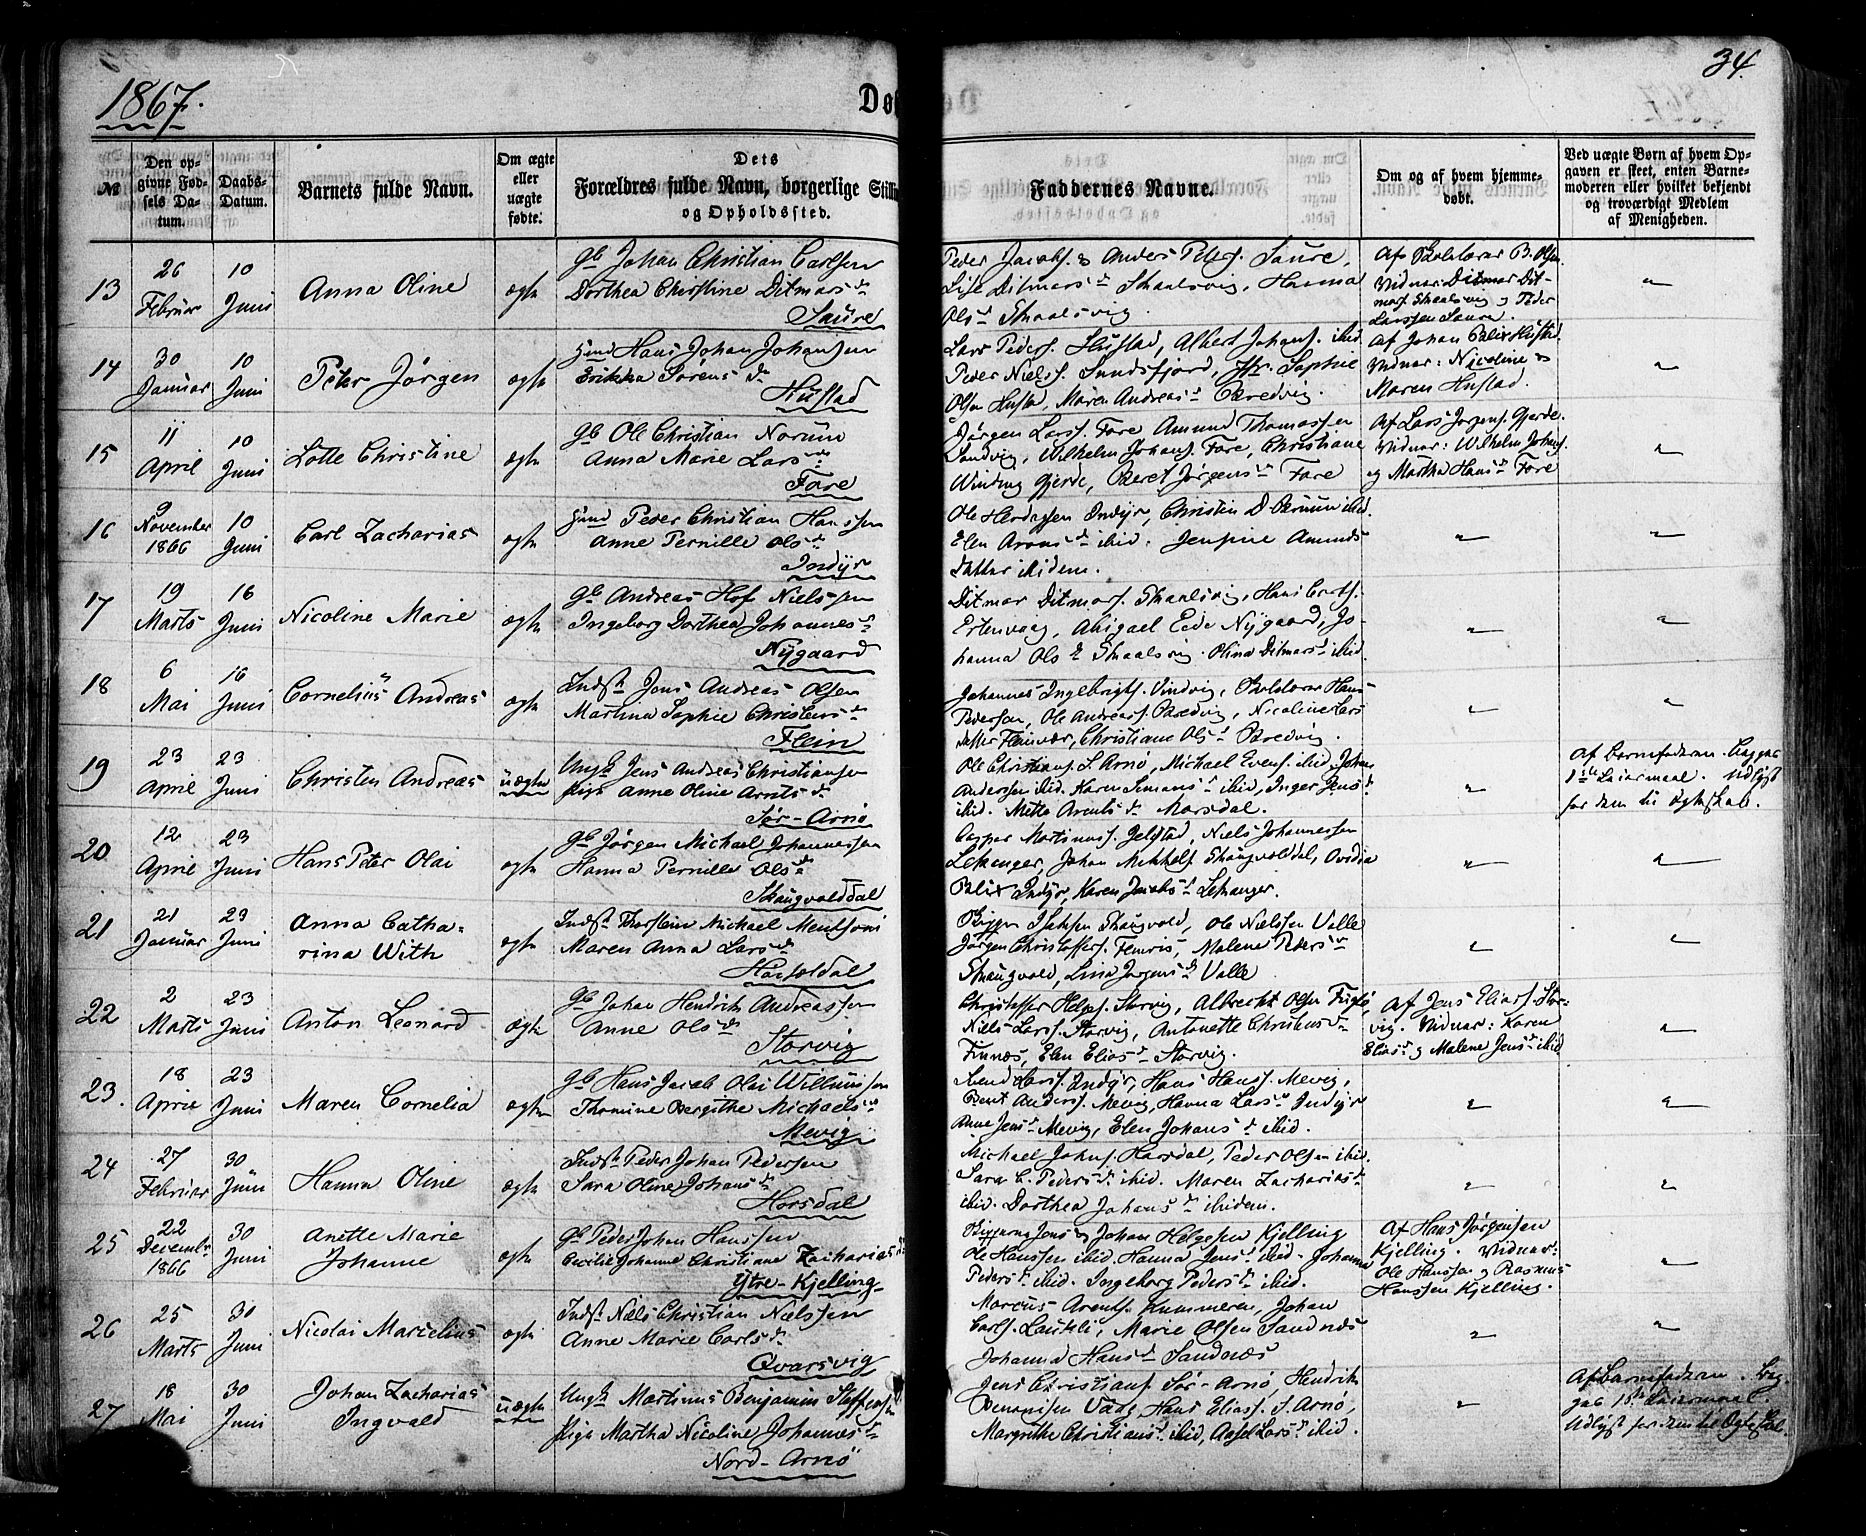 1867.
Dø
34.
№
Den opgivne Fødsels Datum.
Daabs-Datum.
Barnets fulde Navn.
Om ægte eller uægte fødte.
Dets Forældres fulde Navn, borgerlige Still og Opholdssted.
Faddernes Navne.
Om og af hvem hjemmedøbt.
Ved uægte Børn af hvem Opgaven er skeet, enten Barnemoderen eller hvilket bekjendt og troværdigt Medlem af Menigheden.
13
26 Februar
10 Juni
Anna Oline
ægte
Gb Johan Christian Carlsen
Dorthea Christine Ditmarsd.
Saure
Peder Jacobs. & Anders Peters. Saure,
Lise Ditmarsd. Skaalsvig, Hanna
Olsd. Skaalsvig.
Af Skolelærer B. Olsen.
Vidner Ditmar Dit-
mars. Skaalsvig og Peder
Larssen Saure.
"
14
30 Januar
10 Juni
Peter Jørgen
ægte
Hans Johan Johansen
Erikka Sørensd.
Hustad
Lars Peders. Hustad, Albert Johans. ibid.
Peder Niels. Sundsfjord, Sophie
Olsen Hustad, Maren Andreasd. Bredvig.
Af Johan Balix Hustad.
Vidner: Nicoline &
Maren Hustad.
"
15
11 April
10 Juni
Lotte Christine
ægte
Gb Ole Christian Norum
Anna Marie Larsd.
Fore
Jørgen Larss. Fore Amund Thomassen
Sandvig, Wilhelm Johans. Fore, Christiane
Winding Gjerde, Beret Jørgensd. Fore
Af Lars Jørgens. Gjerde.
Vidner: Wilhelm Johans.
og Martha Hansd. Fore
"
16
9 November 1866
10 Juni
Carl Zacharias
ægte
Peder Christian Hanssen
Anne Pernille Olsd.
Indyr
Elen Aronsd. ibid. Amunds
datter ibidem.
"
"
17
19 Marts
16 Juni
Nicoline Marie
ægte
Gb Andreas Hof Nielssen
Ingeborg Dorthea Johannesd.
Nygaard
Ditmar Ditmars. Skaalsvig, Hans
Abigael Eide Nygaard, Jo-
hanna Olsd. Skaalsvig. Olina Ditmarsd. ibid.
"
"
18
6 Mai
16 Juni
Cornelius Andreas
ægte
Indst. Jens Andreas Olsen
Martina Sophie Christensd.
Flein
Johannes Ingebrigts. Vindvig, Skolelærer Hans
Pedersen, Ole Andreass. Bredvig, Nicoline Lars
datter Fleinvær, Christiane Olsd. Bredvig.
"
"
19
23 April
23 Juni
Christen Andreas
uægte
Ungk. Jens Andreas Christiansen
Pige Anne Oline Arntsd.
Sør-Arnø
Ole Christians. S. Arnø, Michael Evens. ibid. Johan
Anderssen ibid. Karen Simonsd. ibid, Inger Jensd.
ibid. Mette Arentsd. Morsdal.
"
Af Barnefaderen. Begges
1ste Leiermaal. Udlyst
for dem til Ægteskab.
20
12 April
23 Juni
Hans Peter Olai
ægte
Gb Jørgen Michael Johannessen
Hanna Pernille Olsd.
Skaugvolddal
Caspar Martinus. Jelstad, Niels Johannessen
Lekanger, Johan Mikkels. Skaugvolddal, Ovidia
Balix Indyr, Karen Jacobsd. Lekanger.
"
"
21
21 Januar
23 Juni
Anna Catha-
rina With
ægte
Indst. Thorstein Michael Mentsoni
Maren Anna Larsd.
Skaugvold, Ole Nielssen Valle
Jørgen Christoffers. Femris, Malene Pedersd.
Skaugvold, Lina Jørgensd. Valle
"
"
22
2 Marts
23 Juni
Anton Leonard
ægte
Gb Johan Hendrik Andreassen
Anne Olsd.
Storvig
Christoffer Helges. Storvig, Albrecht Olsen Fuglø,
Niels Larss. Storvig, Antonette Christensd.
Finnæs, Elen Eliasd. Storvig.
Af Jens Elias. Stor-
vig. Vidner: Karen
Eliasd. og Malene Jensd. ibid
"
23.
18 April
23 Juni
Maren Cornelia
ægte
Gb Hans Jacob Olai Willumsen
Thomine Bergithe Michaelsd.
Mevig
Larss. Indyr, Hans Hanss. Mevig,
Bent Anderss. Mevig, Hanna Larsd. Indyr
Anne Jensd. Mevig, Elen Johansd. ibid.
"
"
24
27 Februar
30 Juni
Hanna Oline
ægte
Indst. Peder Johan Pedersen
Sara Oline Johansd.
Horsdal
Michael Johns. Horsdal, Peder Olsen ibid.
Sara C. Pedersd. ibid. Maren Zachariasd.
ibid. Dorthea Johansd. ibidem.
"
"
25
22 Decembr 1866
30 Juni
Anette Marie
Johanne
ægte
Gb Peder Johan Hanssen
Cecilie Johanne Christiane Zachariasd.
Ytre-Kjelling
Jens & Johan Helgesen Kjelling
Ole Hanssen ibid. Hanna Jensd. ibid. Johanna
Pedersd. ibid. Ingeborg Pedersd. ibid.
Af Hans Jørgensen
Kjelling. Vidner:
Ole Hanssen og Rasmus
Hanssen Kjelling.
"
26
25 Marts
30 Juni
Nicolai Marselius
ægte
Indst. Niels Christian Nielssen
Anne Marie Carlsd.
Qvarsvig
Marcus Arents. Kummeren, Johan
Carls. Laukli, Marie Olsen Sandnæs
Johanna Hansd. Sandnæs
"
"
27
18 Mai
30 Juni
Johan Zacharias
Ingvald
uægte
Ungk. Martinus Benjamin Steffensen
Pige Martha Nicoline Johannesd.
Nord-Arnø
Jens Christians. Sør-Arnø, Hendrik
Benonisen Vaag, Hans Eliass. S. Arnø,
Margrethe Christiansd. ibid, Larsd. ibid.
"
Af Barnefaderen. Beg-
ges 1ste Leiermaal
Udlyst for dem til Ægteskab.